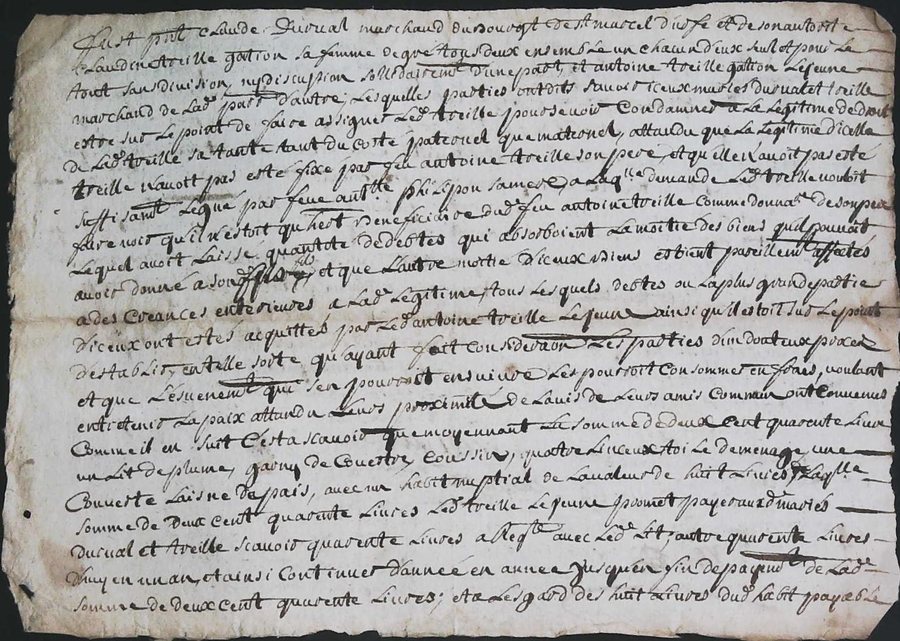 fust pnt Claude Duvual marchand du bourgt de St marcel durfe et de son autorite
Claudine treille gation sa femme de gre tous deux ensemble un chacun deux seul et pour le
tout sans division ny discussion sollidairemt dune part, et antoine treille gation le jeune
marchand de lad. pars dautre; lesquelles parties ont dits scavoir iceux mariés duvual et treille
estre sur le point de faire assigner led. treille pour se voir condamner a la legitime de droit
de lad. treille sa tante tant du costé paternel que maternel, attandu que la legitime dicelle
treille navoit pas esté fixé par feu antoine treille son pere, et quelle navoit pas esté
suffisamt legué par feue anthtte philipon sa mere, a laqlle demande led. treille vouloit
faire voir quil nestoit quherit beneficiaire dud. feu antoine treille comme donnare de son pere
lequel avoit laissé quantote de debtes qui absorboient la moitie des biens quil pouvoit
avoir donné a sond. fils, et que lautre motie diceux biens estoient pareillemt affectés
a des creances enterieures a lad. legitime, tous lesquels debtes ou la plus grande partie
diceux ont estés acquittés par led. antoine treille le jeune ainsi quil estoit sur le point
destablir, en telle sorte quayant fait consideraon les parties dun douteux procer
et que levenemt qui sen pourroit ensuivre les pourroit consommer en frais, voulant
entretenir la paix attandu leurs proximité de lavis de leurs amis commun ont convenus
comme il en suit Cest a scavoir que moyennant la somme de deux cent quarente livres
un lit de plume, garny de couestre, coussin, quatre linceux toile de menage, une
couverte laisne de païs, avec un habit nuptial de la valeur de huit livres, laqlle
somme de deux cent quarente livres led. treille le jeune promet payer auxd. mariés
duvual et treille scavoir quarente livres a Reqte avec led. lit, autre quarente livres
dhuy en un an, et ainsi continuer dannée en année jusquen fin de payemt de lad.
somme de deux cent quarente livres; et a lesgard des huit livres dud. habit payable